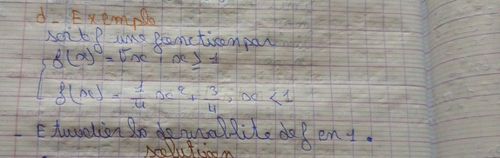 d - Exemple
soit f une fonction par
f(x) = √x , x ≥ 1
f(x) = 1/4 x² + 3/4 , x < 1
- Etuudier la derivablite de f en 1.
solution